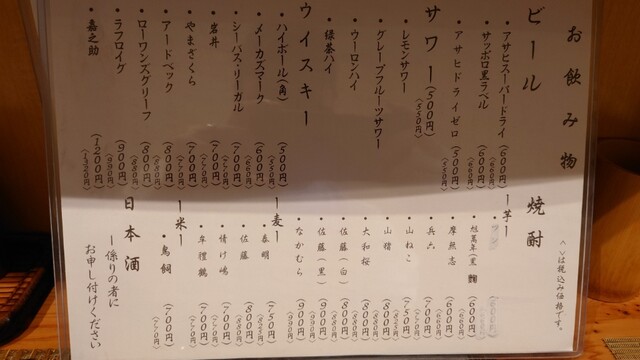 お飲み物
＜＞は税込み価格です。
ビール
・アサヒスーパードライ (600円) <660円>
・サッポロ黒ラベル (600円) <660円>
・アサヒドライゼロ (500円) <550円>
サワー (500円) <550円>
・レモンサワー
・グレープフルーツサワー
・ウーロンハイ
・緑茶ハイ
ウイスキー
・ハイボール(角) (500円) <550円>
・メーカズマーク (600円) <660円>
・シーバス・リーガル (700円) <770円>
・岩井 (700円) <770円>
・やまざくら (700円) <770円>
・アードベック (800円) <880円>
・ローワンズグリーフ (800円) <880円>
・ラフロイグ (900円) <990円>
・嘉之助 (1200円) <1320円>
焼酎
ー芋ー
・旭萬年(黒 (600円) <660円>
・摩無志 (600円) <660円>
・兵六 (700円) <770円>
・山ねこ (750円) <825円>
・山猪 (800円) <880円>
・大和桜 (800円) <880円>
・佐藤(白) (800円) <880円>
・佐藤(黒) (900円) <990円>
・なかむら (900円) <990円>
ー麦ー
・泰明 (750円) <825円>
・佐藤 (800円) <880円>
・情け嶋 (700円) <770円>
・牟禮鶴 (700円) <770円>
ー米ー
・鳥飼 (700円) <770円>
日本酒
ー係りの者に
お申し付けください